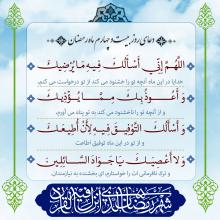 دعای روز بیست و چهارم ماه رمضان
اللَّهُمَّ إِنِّي أَسْأَلُكَ فِيهِ مَا يُرْضِيكَ
خدایا در این ماه آنچه تو را خشنود می کند از تو درخواست می کنم،
وَ أَعُوذُ بِكَ مِمَّا يُؤْذِيكَ
و از آنچه تو را ناخشنود می کند به تو پناه می آورم،
وَ أَسْأَلُكَ التَّوْفِيقَ فِيهِ لِأَنْ أُطِيعَكَ
و از تو در این ماه توفیق اطاعت
وَ لا أَعْصِيَكَ يَا جَوَادَ السَّائِلِينَ
و ترک نافرمانی ات را خواستارم، ای بخشنده به نیازمندان.
شهر رمضان الذی انزل فیه القرآن